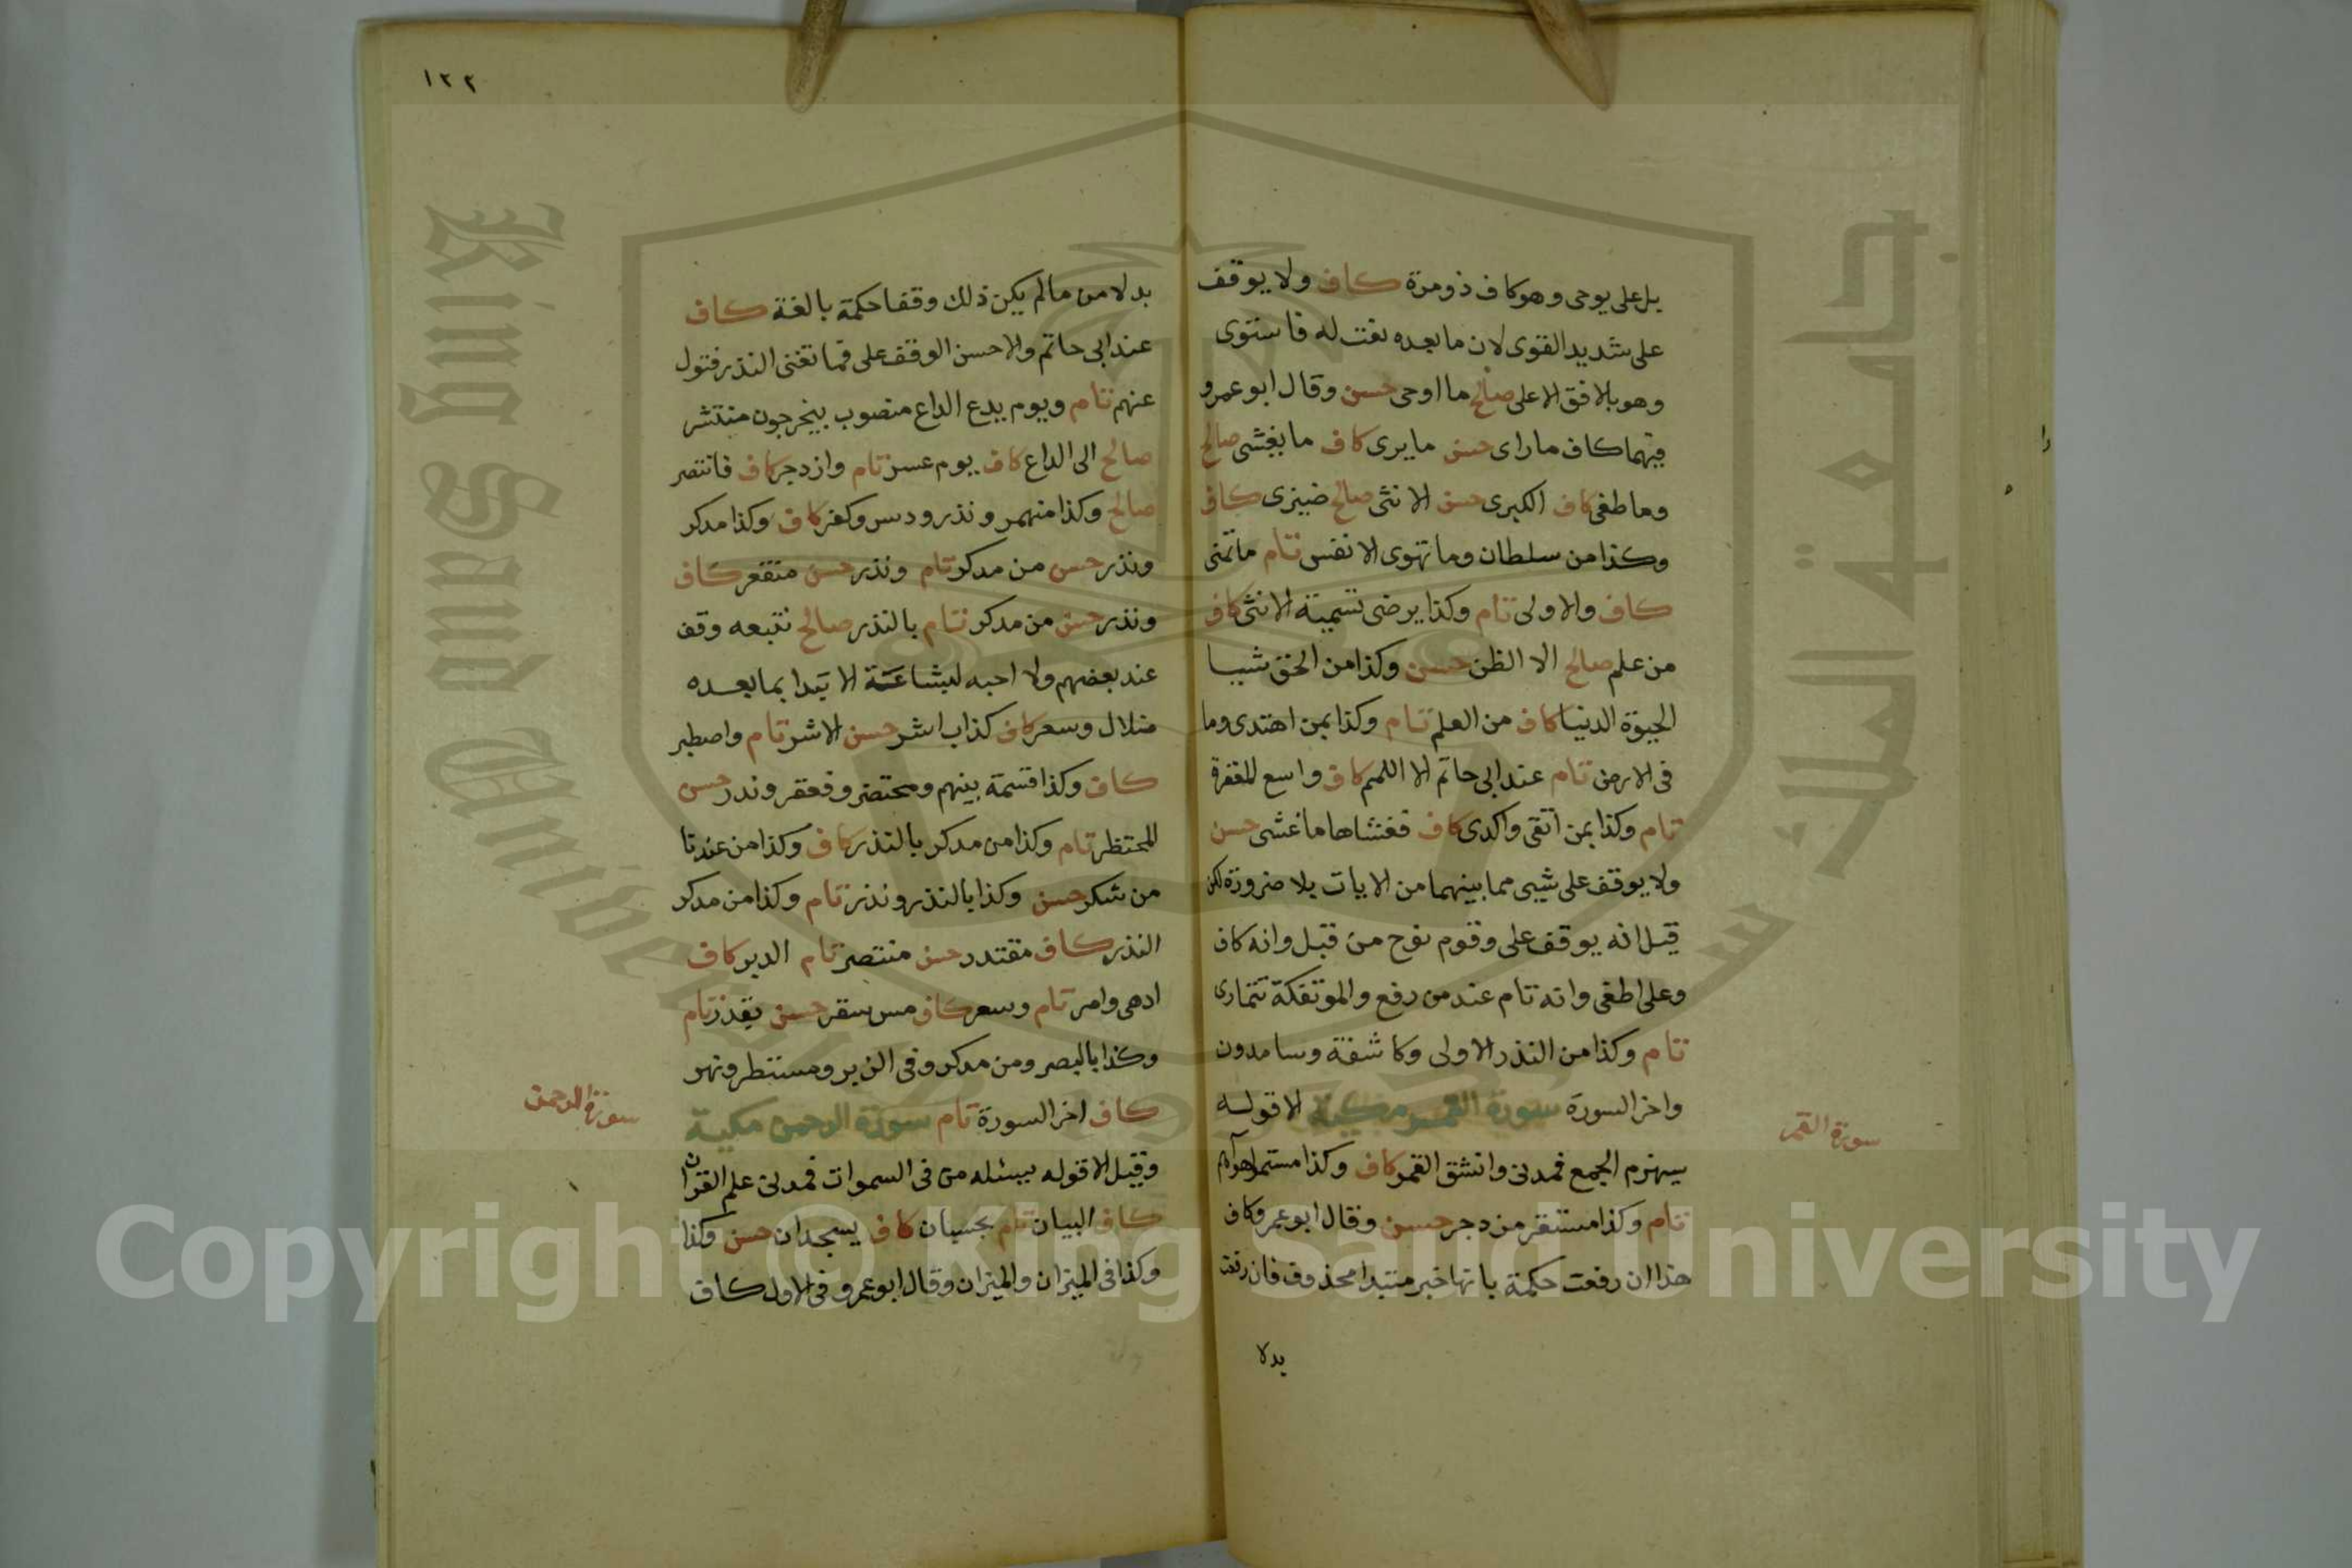 بل على يوحى وهو كاف ذو مرة كاف ولا يوقف
على شديد القوى لان ما بعده نعت له فاستوى
وهو بالافق الاعلى صالح ما اوحى حسن وقال ابو عمرو
فيهما كاف ما راى حسن ما يرى كاف ما يغشى صالح
وما طغى كاف الكبرى حسن الانثى صالح ضيزى كاف
وكذا من سلطان وما تهوى الانفس تام ما تمنى
كاف والاولى تام وكذا يرضى تسمية الانثى كاف
من علم صالح الا الظن حسن وكذا من الحق شيبا
الحيوة الدنيا كاف من العلم تام وكذا بمن اهتدى وما
فى الارض تام عند ابى حاتم الا اللمم كاف واسع المغفرة
تام وكذا بمن اتقى واكدى كاف فغشاها ما غشى حسن
ولا يوقف على شيى مما بينهما من الايات بلا ضرورة لكن
قيل انه يوقف على وقوم نوح من قبل وانه كاف
وعلى اطغى وانه تام عند من رفع والموتفكة تتمارى
تام وكذا من النذر الاولى وكاشفة وسامدون
واخر السورة سورة القمر مكية الا قوله
سيهزم الجمع فمدنى وانشق القمر كاف وكذا مستمر اهواهم
تام وكذا مستقر مزدجر حسن وقال ابو عمرو كاف
هذا ان رفعت حكمة بانها خبر مبتدا محذوف فان رفعت
بدلا
سورة القمر
١٢٢
بدلا من ما لم يكن ذلك وقفا حكمة بالغة كاف
عند ابى حاتم والاحسن الوقف على فما تغنى النذر فتول
عنهم تام ويوم يدع الداع منصوب بيخرجون منتشر
صالح الى الداع كاف يوم عسر تام وازدجر كاف فانتصر
صالح وكذا منهمر ونذر ودسر وكفر كاف وكذا مدكر
ونذر حسن من مدكر تام ونذر حسن منقعر كاف
ونذر حسن من مدكر تام بالنذر صالح نتبعه وقف
عند بعضهم ولا احبه لبشاعة الابتدا بما بعده
ضلال وسعر كاف كذاب اشر حسن الاشر تام واصطبر
كاف وكذا قسمة بينهم ومحتضر وفعقر ونذر حسن
المحتظر تام وكذا من مدكر بالنذر كاف وكذا من عندنا
من شكر حسن وكذا بالنذر ونذر تام وكذا من مدكر
النذر كاف مقتدر حسن منتصر تام الدبر كاف
ادهى وامر تام وسعر كاف مس سقر حسن بقدر تام
وكذا بالبصر ومن مدكر وفى الزبر ومستطر ونهر
كاف اخر السورة تام سورة الرحمن مكية
وقيل الا قوله يسئله من فى السموات فمدنى علم القران
كاف البيان تام بحسبان كاف يسجدان حسن وكذا
وكذا فى الميزان والميزان وقال ابو عمرو فى الاول كاف
سورة الرحمن
King Saud University
جامعة الملك سعود
1957
Copyright © King Saud University